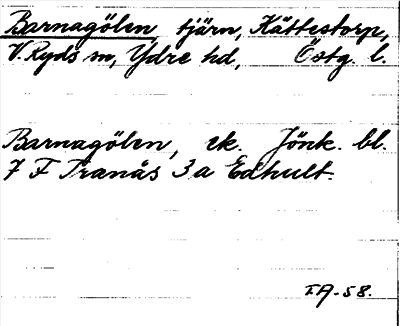 Barnagölen tjärn, Kättestorp,
V. Ryds sn, Ydre hd, Östg. l.
Barnagölen, ek. Jönk. bl.
7 F Tranås 3a Edhult.
FA-58.